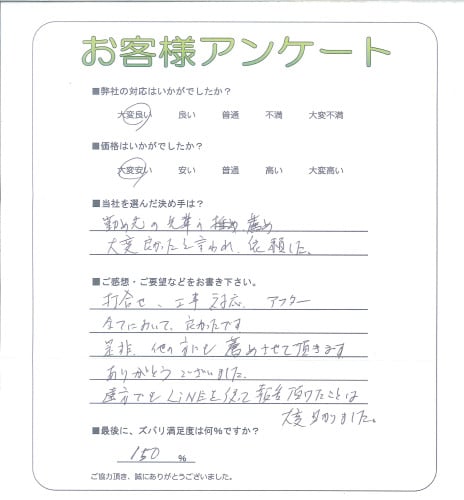 お客様アンケート
■弊社の対応はいかがでしたか？
大変良い 良い 普通 不満 大変不満
■価格はいかがでしたか？
大変安い 安い 普通 高い 大変高い
■当社を選んだ決め手は？
勤め先の先輩の 薦め
大変良かったと言われ、依頼した。
■ご感想・ご要望などをお書き下さい。
打合せ、工事対応、アフター
全てにおいて、良かったです
是非、他の方にも薦めさせて頂きます
ありがとうございました。
遠方でもLINEを使って報告頂けたことは
大変助かりました。
■最後に、ズバリ満足度は何%ですか？
150 %
ご協力頂き、誠にありがとうございました。